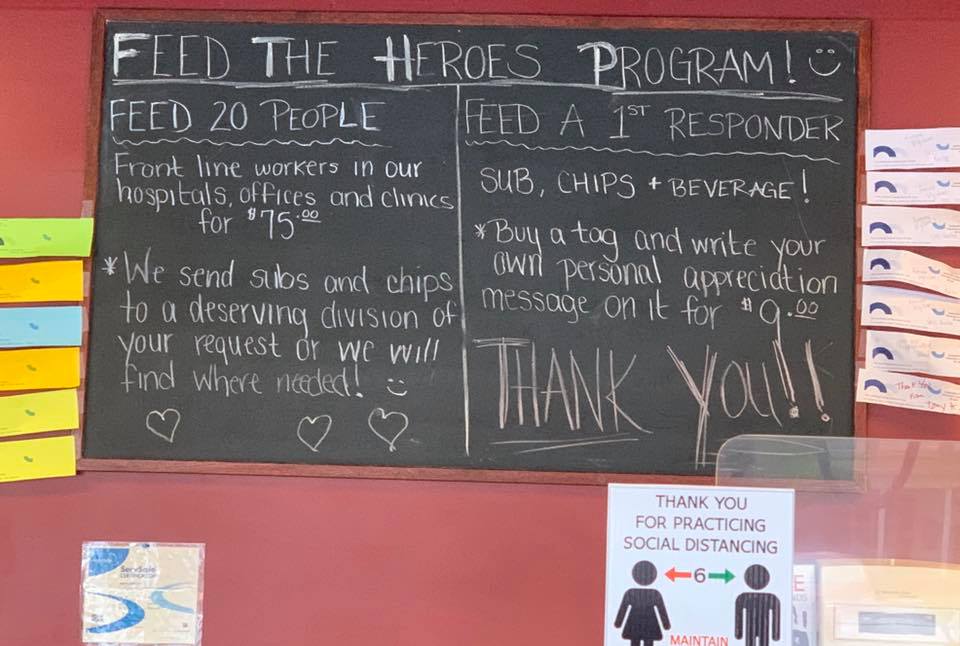 FEED THE HEROES PROGRAM!
FEED 20 PEOPLE
Front line workers in our
hospitals, offices and clinics
for $75.00
*We send subs and chips
to a deserving division of
your request or we will
find where needed!
FEED A 1ST RESPONDER
SUB, CHIPS + BEVERAGE!
*Buy a tag and write your
own personal appreciation
message on it for $9.00
THANK YOU!!!
Thank You
from
ServSafe
CERTIFICATION
THANK YOU
FOR PRACTICING
SOCIAL DISTANCING
6
MAINTAIN